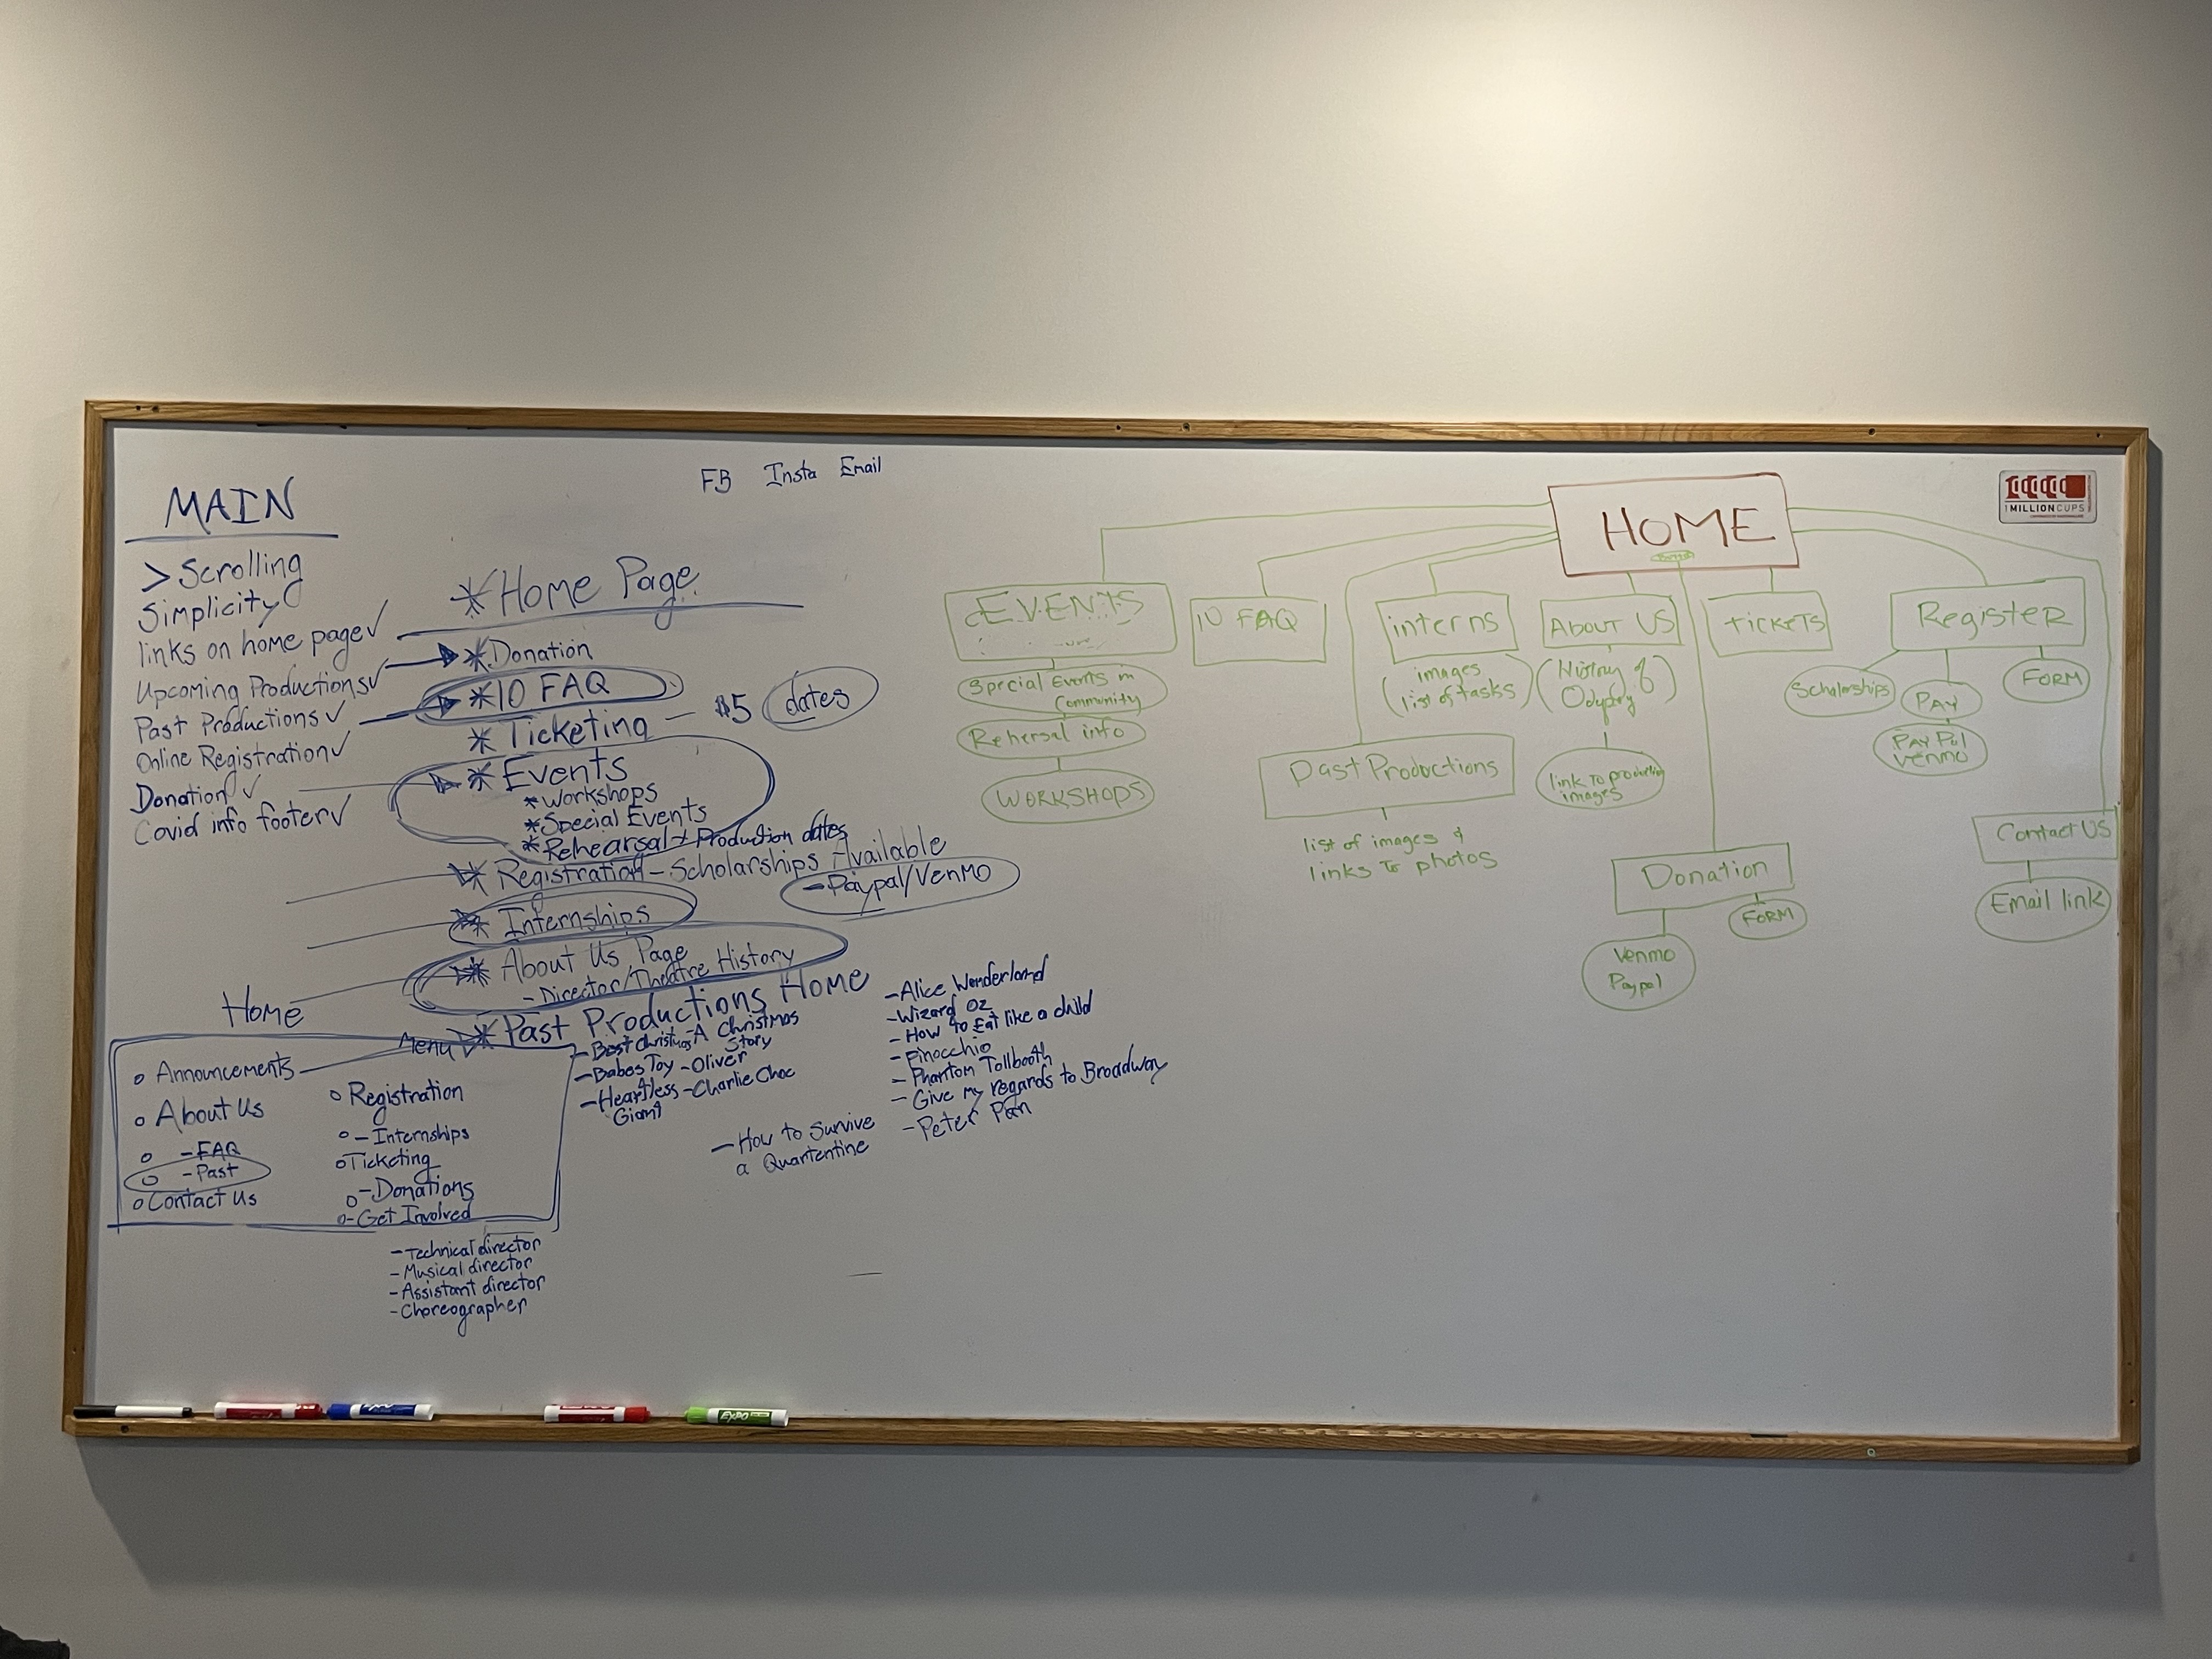 MAIN
> Scrolling
Simplicity
links on home page ✓
Upcoming Productions ✓
Past Productions ✓
Online Registration ✓
Donation ✓
Covid info footer ✓
FB Insta Email
* Home Page
* Donation
* 10 FAQ
* Ticketing — $5 dates
* Events
* Workshops
* Special Events
* Rehearsal + Production dates
* Registration - Scholarships Available
- Paypal/Venmo
* Internships
* About Us Page
- Director/Theatre History
* Past Productions Home
- Best Christmas - A Christmas Story
- Babes Toy - Oliver
- Heartless Giant - Charlie Choc
- How to Survive
a Quartentine
- Alice Wonderland
- Wizard Oz
- How to Eat like a child
- Pinocchio
- Phantom Tollbooth
- Give my regards to Broadway
- Peter Pan
Home
Menu
o Announcements
o About Us
o - FAQ
o - Past
o Contact Us
o Registration
o - Internships
o Ticketing
o - Donations
o - Get Involved
- Technical director
- Musical director
- Assistant director
- Choreographer
HOME
EVENTS
Special Events in
Community
Rehersal info
WORKSHOPS
10 FAQ
interns
images
list of tasks
Past Productions
list of images &
links to photos
About US
(History of
link to production
images
TICKETS
Donation
Venmo
Paypal
FORM
Register
Scholarships
PAY
PayPal
Venmo
FORM
Contact US
Email link
1MILLIONCUPS
EXPO